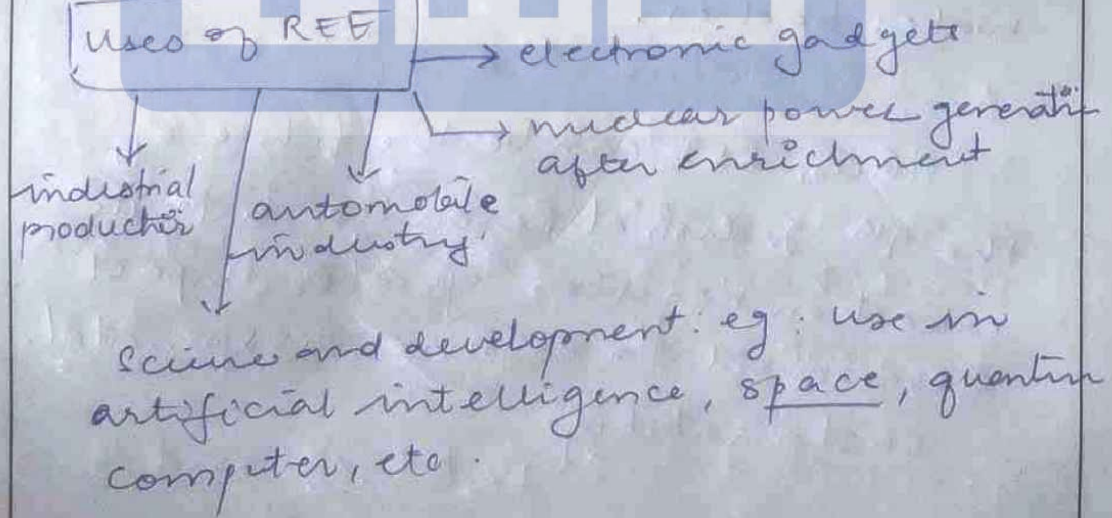 Uses of REE
electronic gadgets
nuclear power generati
after enrichment
industrial
production
automobile
industry
Science and development: eg: use in
artificial intelligence, space, quantum
computer, etc.